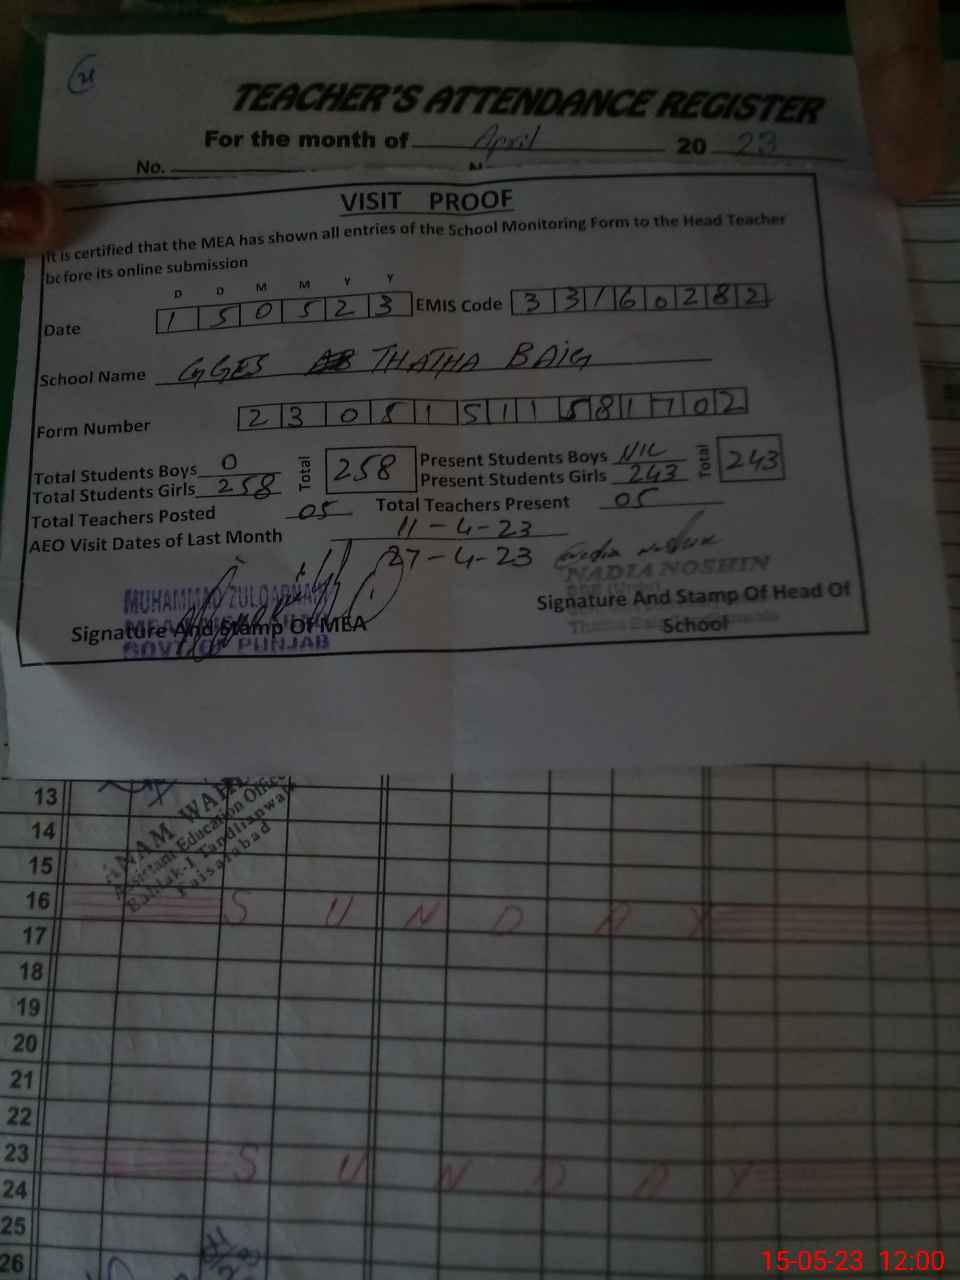 TEACHER'S ATTENDANCE REGISTER
For the month of April 20 23
No.
VISIT PROOF
It is certified that the MEA has shown all entries of the School Monitoring Form to the Head Teacher
before its online submission
D D M M Y Y
Date 1 5 0 5 2 3 EMIS Code 3 3 1 6 0 2 8 2
School Name GGES THATHA BAIG
Form Number 2 3 0 5 1 5 1 1 5 8 1 7 0 2
Total Students Boys 0 Total 258 Present Students Boys NIL Total 243
Total Students Girls 258 Present Students Girls 243
Total Teachers Posted 05 Total Teachers Present 05
AEO Visit Dates of Last Month 11-4-23
27-4-23
NADIA NOSHIN
MUHAMMAD ZULQARNAIN
Signature And Stamp Of MEA
GOVT OF PUNJAB
Signature And Stamp Of Head Of
School
13
14
15
Assistant Education Officer
Tandlianwala
Faisalabad
16 S U N D A Y
17
18
19
20
21
22
23 S U N D A Y
24
25
26
15-05-23 12:00